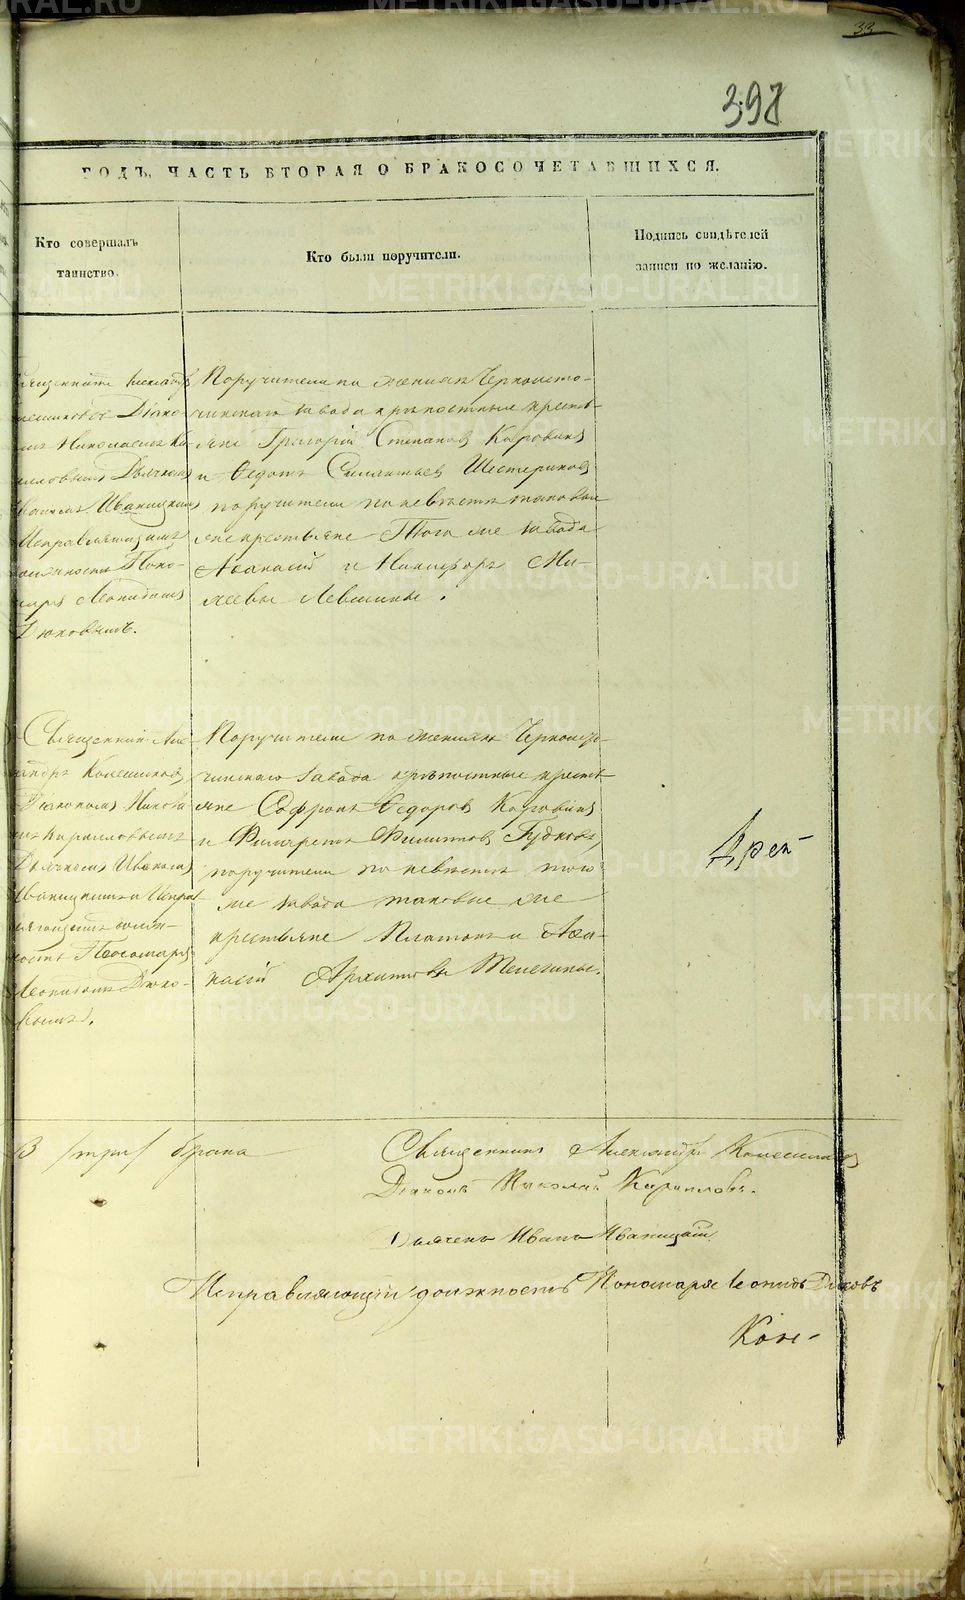 33
398
ГОДЪ, ЧАСТЬ ВТОРАЯ О БРАКОСОЧЕТАВШИХСЯ.
Кто совершалъ
таинство.
Кто были поручители.
Подпись свидѣтелей
записи по желанію.
Діяко-
номъ Николаемъ Ки-
рилловымъ Дьячкомъ
Иваномъ Иваницкимъ
Исправляющимъ
должность Поно-
маря Леонидомъ
Дюковымъ.
Поручители по женихѣ Черноисто-
чинскаго завода крѣпостные кресть-
яне Григорій Степановъ Коровинъ
и Ѳедотъ Силантьевъ Шестериковъ
поручители по невѣстѣ таковые
же крестьяне Того же завода
Аѳанасій и Никифоръ Ми-
хѣевы Левшины.
Священникъ Алек-
сандръ Колесниковъ
Діякономъ Никола-
емъ Кирилловымъ
Дьячкомъ Иваномъ
Иваницкимъ и Исправ-
ляющимъ долж-
ность Пономаря
Леонидомъ Дюко-
вымъ.
Поручители по женихѣ Черноисто-
чинскаго завода крѣпостные кресть-
яне Софронъ Ѳедоровъ Коровинъ
и Филиповъ Гудковъ,
поручители по невѣстѣ того
же завода таковые же
крестьяне Платонъ и Аѳа-
насій Архиповы Телегины.
Ареѳ-
3 /три/ брака
Священникъ Александръ Колесниковъ
Діаконъ Николай Кирилловъ.
Дьячекъ Иванъ Иваницкій
Исправляющій должность Пономаря Леонидъ Дюковъ
Кон-
METRIKI.GASO-URAL.RU